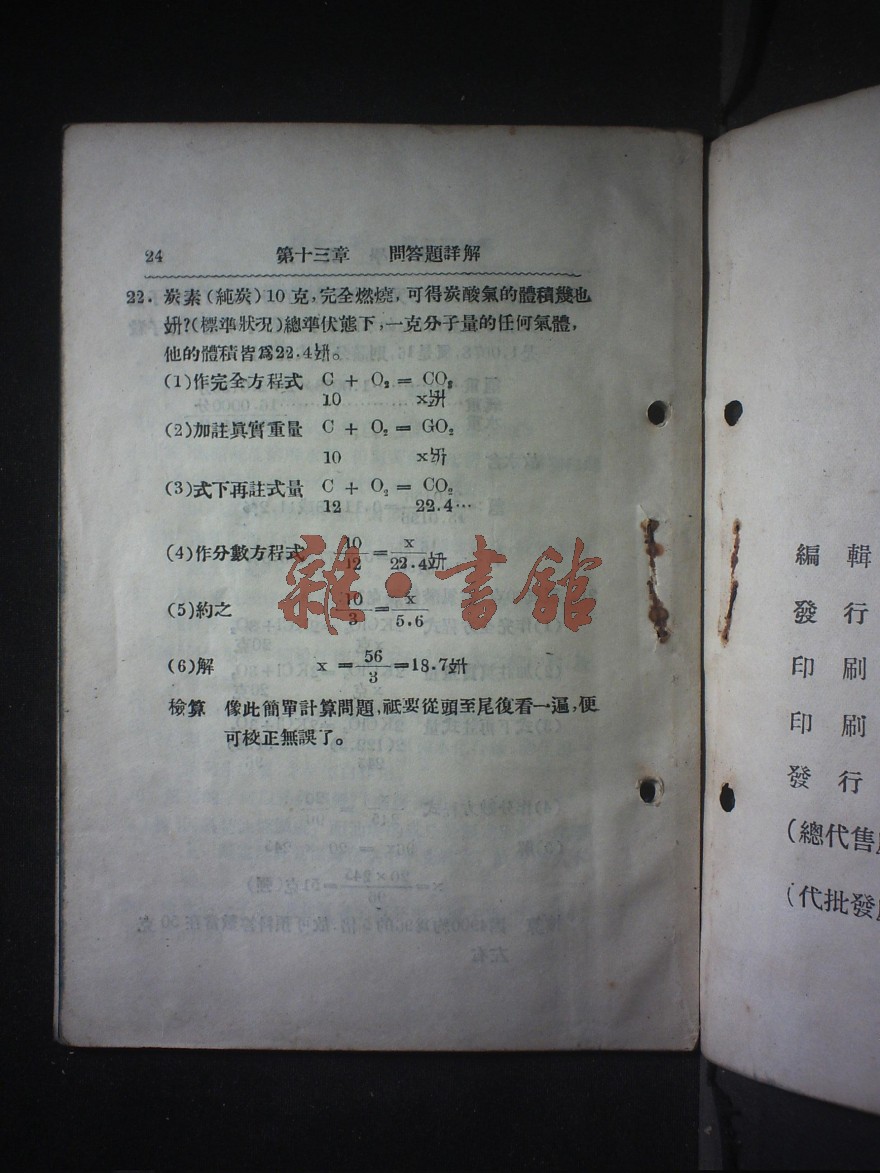 24 第十三章 問答題詳解
22. 炭素(純炭)10克,完全燃燒,可得炭酸氣的體積幾也
?(標準狀況)總準伏態下,一克分子量的任何氣體,
他的體積皆爲22.4。
(1)作完全方程式 C + O₂ = CO₂
10 x
(2)加註眞實重量 C + O₂ = GO₂
10 x
(3)式下再註式量 C + O₂ = CO₂
12 22.4…
(4)作分數方程式 10/12 = x/22.4
(5)約之 10/3 = x/5.6
(6)解 x = 56/3 = 18.7
檢算 像此簡單計算問題,祗要從頭至尾復看一遍,便
可校正無誤了。
雜·書館
編輯
發行
印刷
印刷
發行
(總代售
(代批發